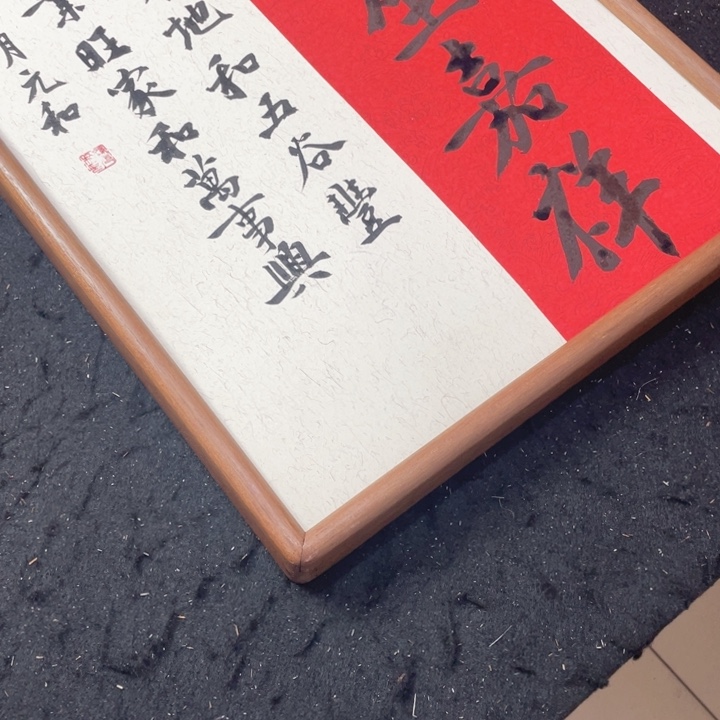 嘉祥
地和五谷豐
旺家和萬事興
月元和